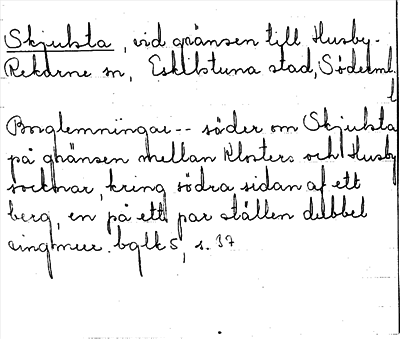 Skjulsta, vid gränsen till Husby-
Rekarne sn, Eskilstuna stad, Söderml.
l
Borglemningar -- söder om Skjulsta
på gränsen mellan Klosters och Husby
socknar, kring södra sidan af ett
berg, en på ett par ställen dubbel
ringmur. bglk 5, s. 37